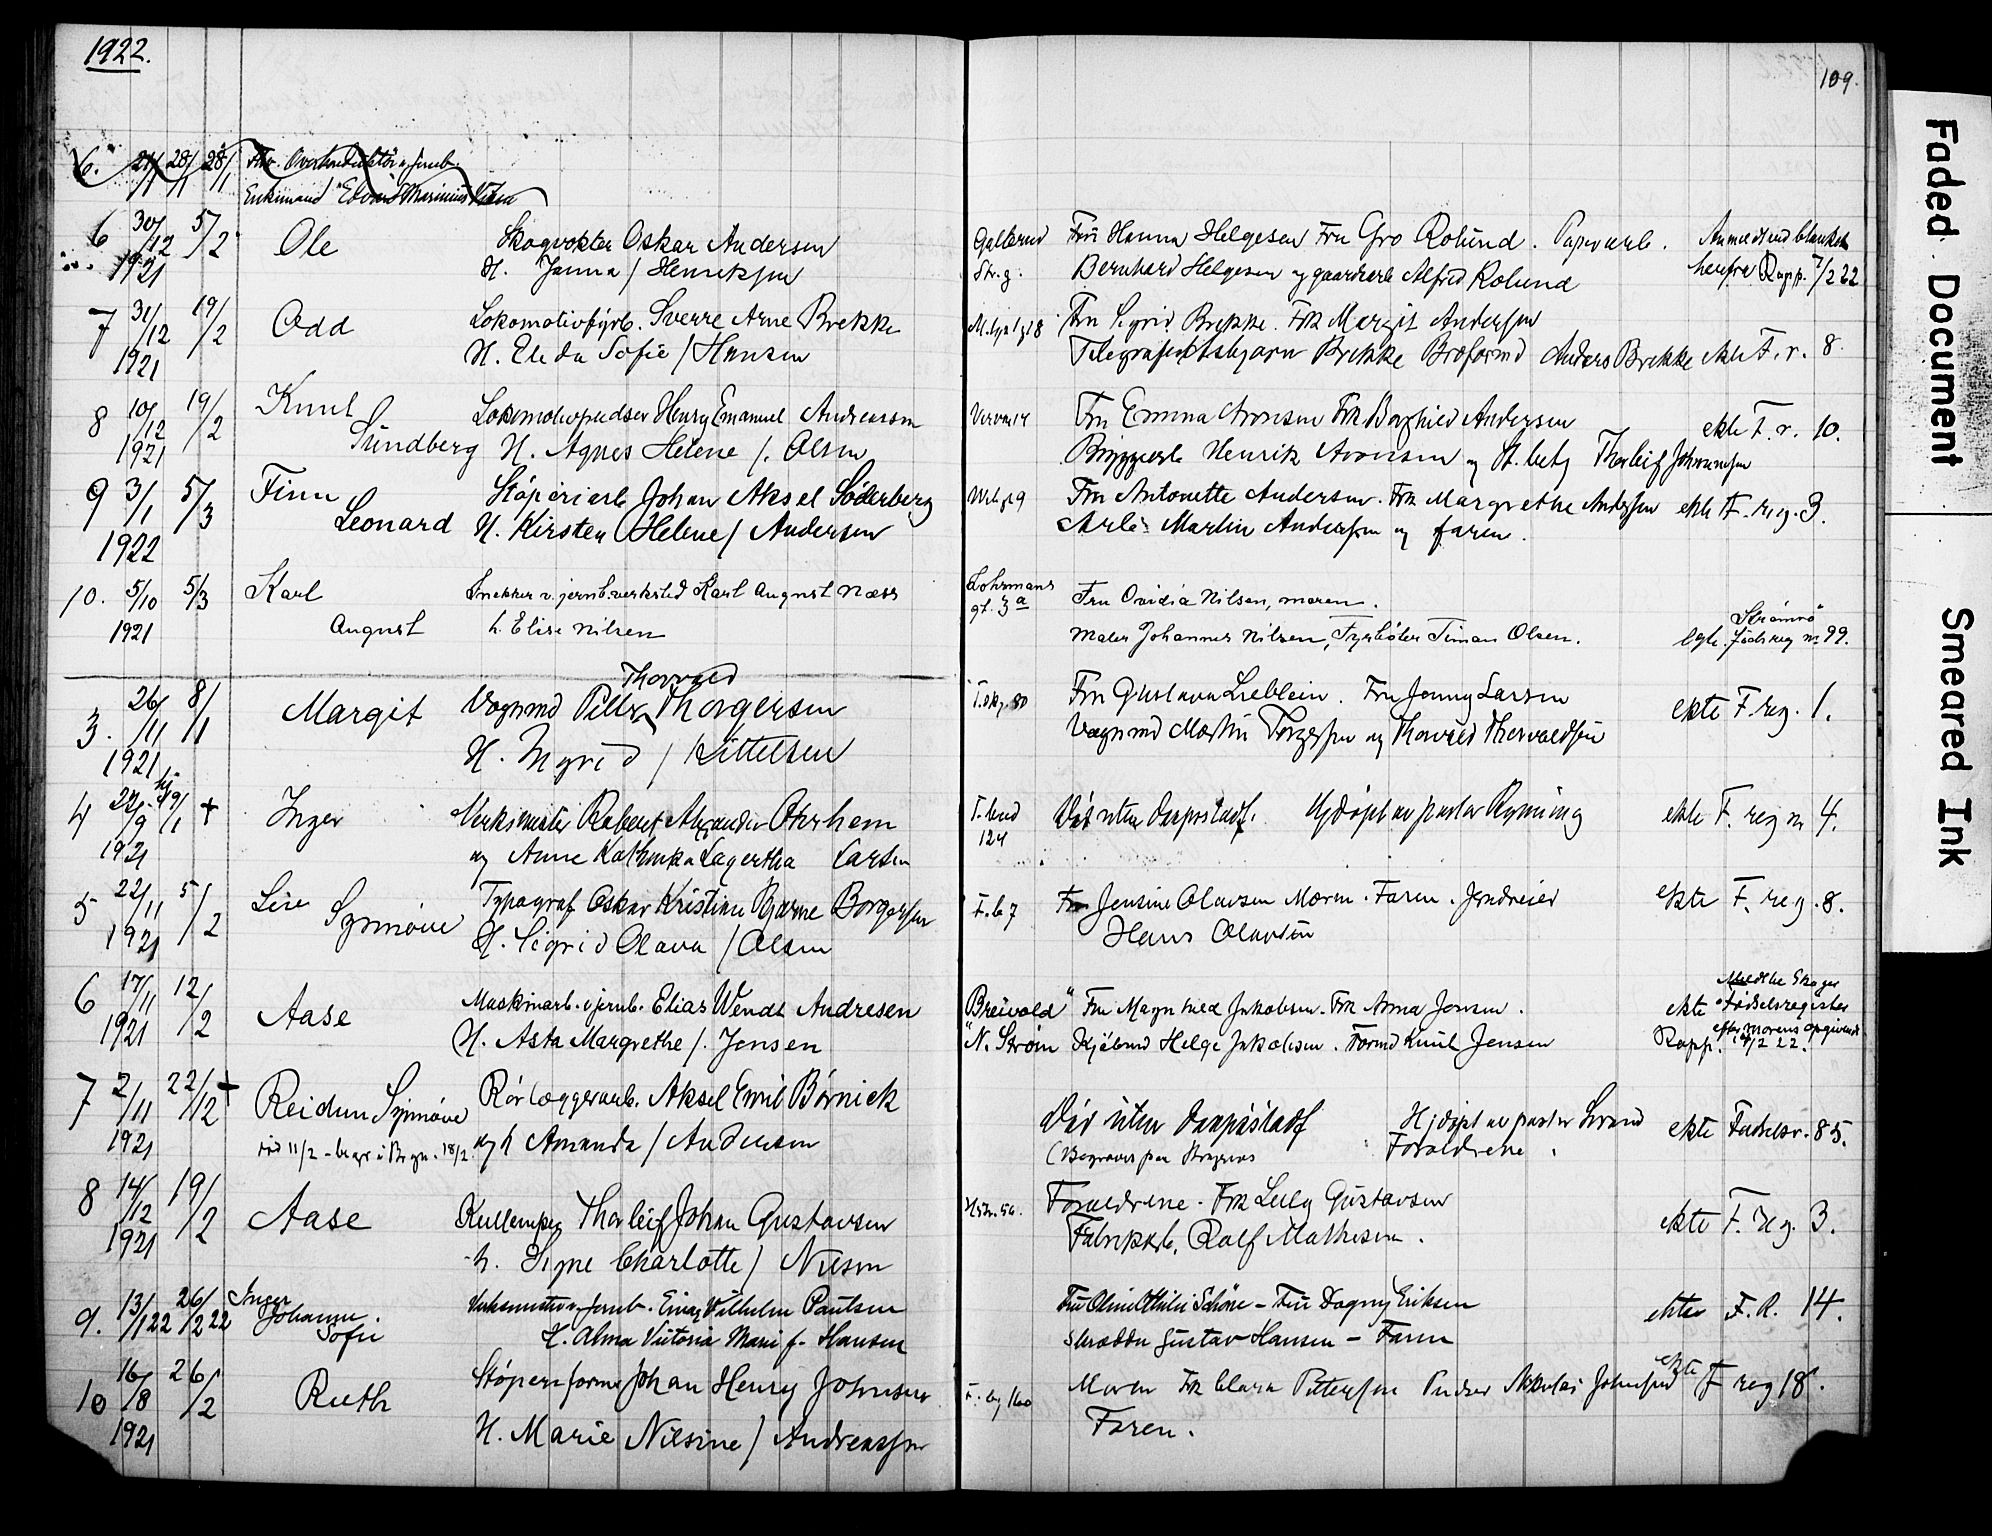 1922.
109.
6. 21/1 28/1 28/1
Enkemand Edvard Marinius
6 30/12 1921 5/2 Ole Skogvokter Oskar Andersen
H. Janna / Henriksen
Galterud Fru Hanna Helgesen Fru Gro Rolund. Papirarb. Anmeldt end blanket
Str.g. Bernhard Helgesen og gaardarb Alfred Rolund herfra Rapp. 7/2 22
7 31/12 1921 19/2 Odd Lokomotivfyrb. Sverre Arne Brekke
H. Elida Sofie / Hansen
Fru Sigrid Brekke. Frk Margit Andersen
Telegrafist Asbjørn Brekke Broformd Anders Brekke ekte F. r. 8.
8 10/12 1921 19/2 Knut Sundberg Lokomotivpudser Henry Emanuel Andreassen
H. Agnes Helene /. Olsen
Fru Emma Aronsen Frk Borghild Andersen
Bryggearb Henrik Aronsen og St. betj Thorleif Johannesen ekte F. r. 10.
9 3/1 1922 5/3 Finn Leonard Støperiarb Johan Aksel Söderberg
H. Kirsten Helene / Andersen
Fru Antonette Andersen. Frk Margrethe Andersen ekte F. reg. 3.
Arb. Martin Andersen og faren.
10. 5/10 1921 5/3 Karl August Snekker v. jernb.verksted Karl August Næss
h. Elise Nilsen
Lohrmans gt. 3a Fru Ovidia Nilsen, moren.
Maler Johannes Nilsen, Fyrbøter Timan Olsen. egte. Strømsø fødsreg nr 99.
3. 26/11 1921 8/1 Margit Vognmd Petter Thorvald Thorgersen
H. Ingrid / Kittelsen
Fru Gustava Lieblein. Fru Jenny Larsen
Vognmd Martin Torgersen og Thorvald Thorvaldsen ekte F. reg. 1.
4 22/9 1921 hj. 19/1 + Inger Verksmester Robert Alexander Ohrhem
og Anne Kathinka Lagertha Larsen
124 Død uten daapsstadf. Hjdøpt av pastor Rynning ekte F. reg nr 4.
5 22/11 1921 5/2 Lise Synnøve Typograf Oskar Kristian Bjarne Borgersen
H. Sigrid Olava / Olsen
F.b 7 Fru Jensine Olavsen Moren. Faren. Jendreier
Hans Olavsen ekte F. reg. 8.
6 17/11 1921 12/2 Aase Maskinarb. v jernb. Elias Wendt Andresen
H. Asta Margrethe /. Jensen
"Breivold" Fru Magnhild Jakobsen. Frk Anna Jensen.
"N. Strøm Kjøbmd Helge Jakobsen. Formd Knut Jensen
ekte Meldt til Skoger Fødselsregister efter morens opgivende
Rapp. 14/2 22.
7 2/11 1921 22/12 + Reidun Synnøve Rørlæggerarb. Aksel Emil Börnick
død 11/2 - begr i 18/2. og h Amanda / Andersen
Død uten daapsstadf Hjdøpt av pastor Strand
(Begraves paa Foreldrene. ekte Fødselsr. 85.
8 14/12 1921 19/2 Aase Kullemper Thorleif Johan Gustavsen
h. Signe Charlotte / Nilsen
H.str. 56. Foreldrene. Frk Leily Gustavsen
Fabrikkarb. Rolf Mathisen. ekte F. reg. 3.
9. 13/1 22 26/2 22 Inger Johanne. Sofie Verksmester v Jernb. Einar Vilhelm Paulsen
H. Alma Viktoria Marie f. Hansen
Fru Oline Othilie Schöne - Fru Dagny Eriksen
Skrædder Gustav Hansen - Faren ekte F. R. 14.
10 16/8 1921 26/2 Ruth Støperiformer Johan Henry Johnsen
H. Marie Nilsine / Andreassen
Moren Frk Clara Pettersen Pudser Nikolai Johnsen ekte F reg 18.
Faren.
Faded Document
Smeared Ink